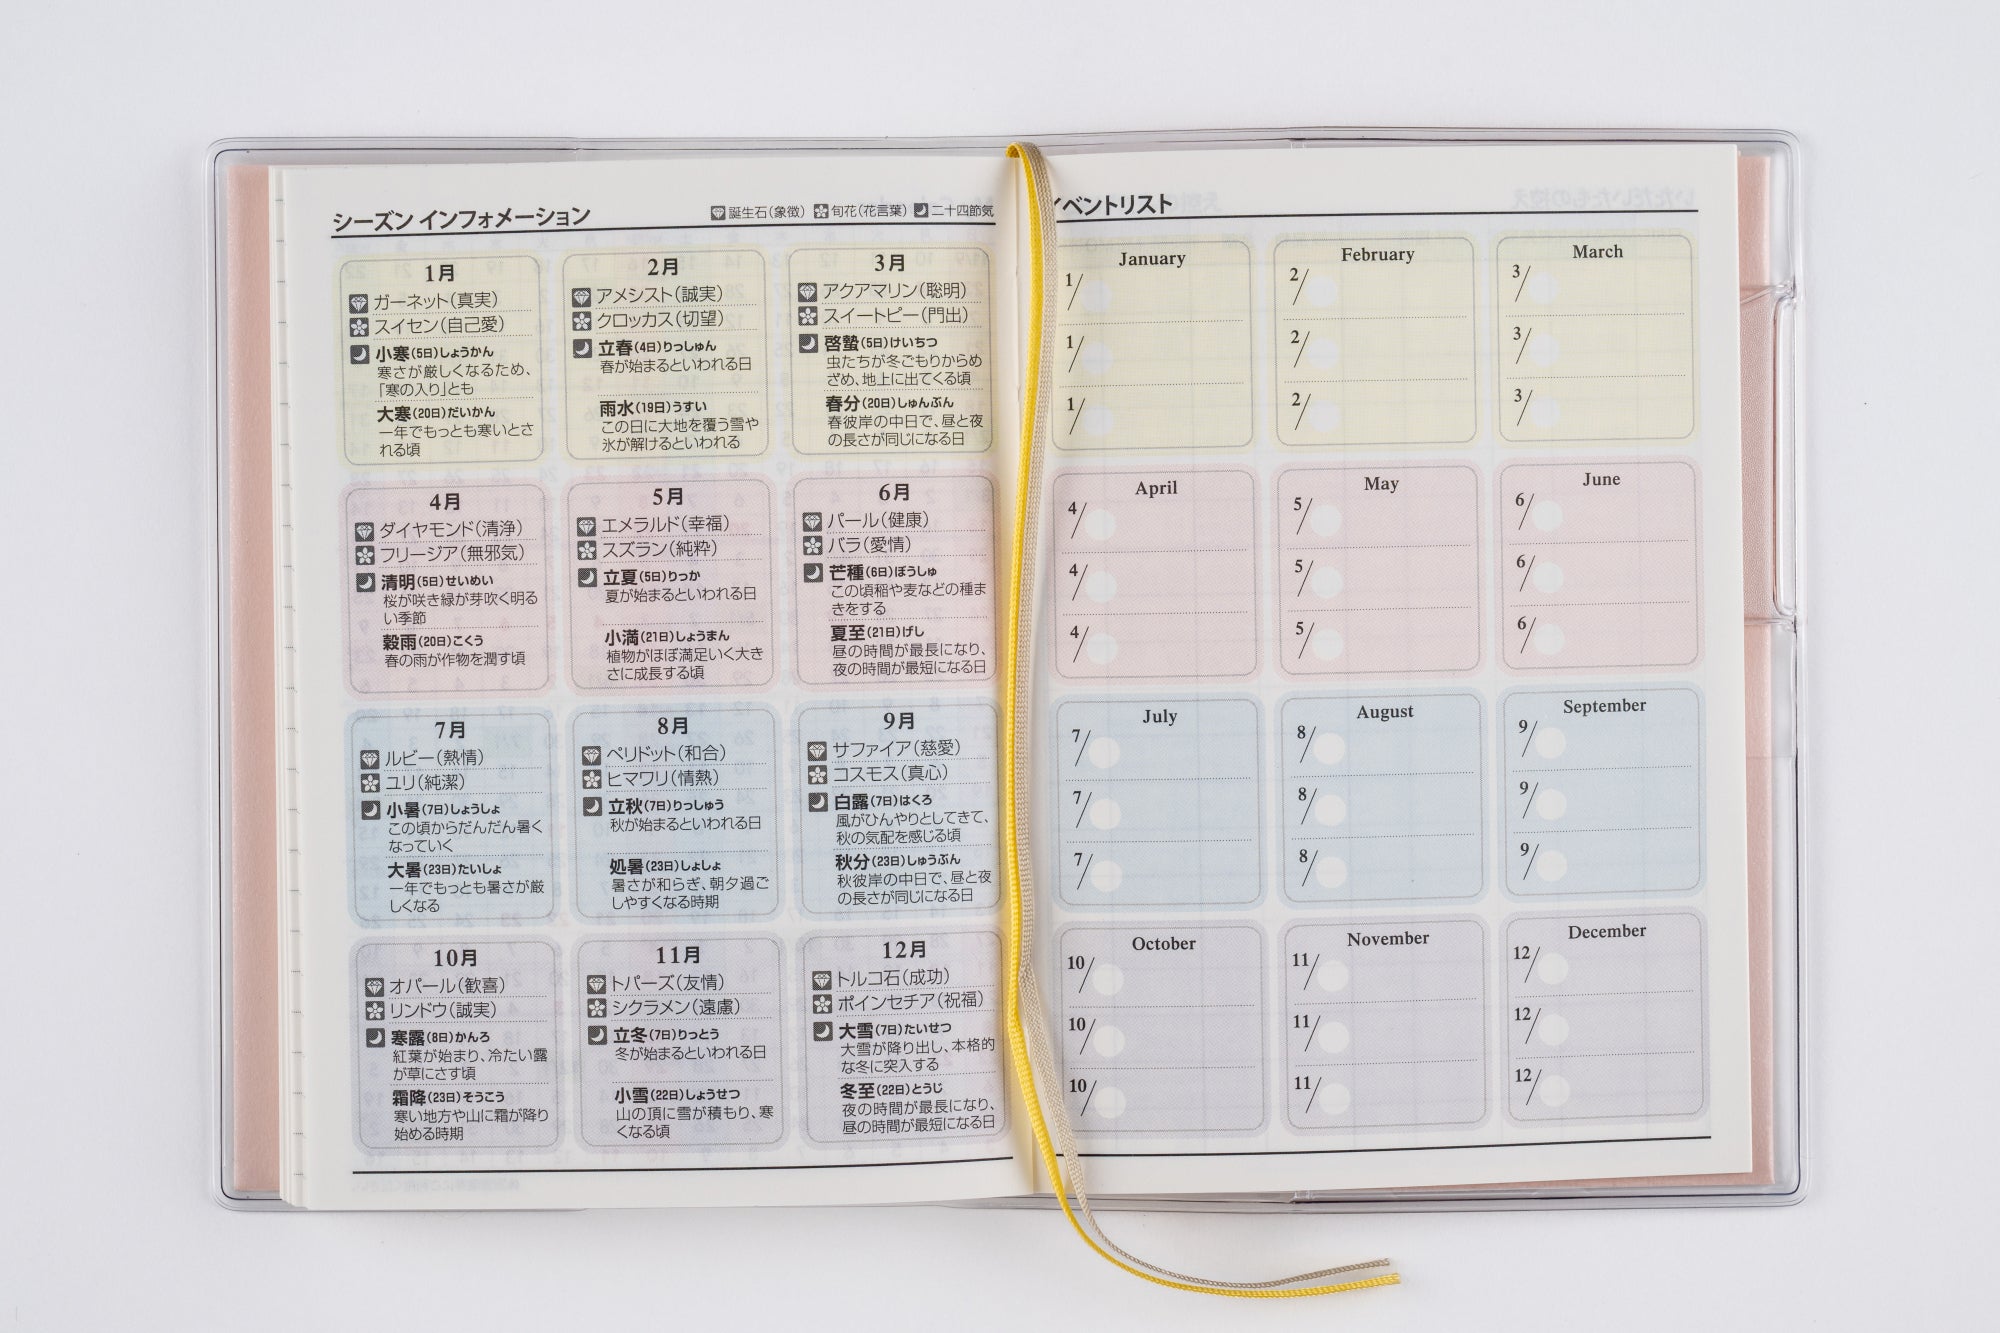 シーズン インフォメーション
誕生石(象徴) 旬花(花言葉) 二十四節気
1月
ガーネット(真実)
スイセン(自己愛)
小寒(5日)しょうかん
寒さが厳しくなるため、
「寒の入り」とも
大寒(20日)だいかん
一年でもっとも寒いとさ
れる頃
2月
アメシスト(誠実)
クロッカス(切望)
立春(4日)りっしゅん
春が始まるといわれる日
雨水(19日)うすい
この日に大地を覆う雪や
氷が解けるといわれる
3月
アクアマリン(聡明)
スイートピー(門出)
啓蟄(5日)けいちつ
虫たちが冬ごもりからめ
ざめ、地上に出てくる頃
春分(20日)しゅんぶん
春彼岸の中日で、昼と夜
の長さが同じになる日
4月
ダイヤモンド(清浄)
フリージア(無邪気)
清明(5日)せいめい
桜が咲き緑が芽吹く明る
い季節
穀雨(20日)こくう
春の雨が作物を潤す頃
5月
エメラルド(幸福)
スズラン(純粋)
立夏(5日)りっか
夏が始まるといわれる日
小満(21日)しょうまん
植物がほぼ満足いく大き
さに成長する頃
6月
パール(健康)
バラ(愛情)
芒種(6日)ぼうしゅ
この頃稲や麦などの種ま
きをする
夏至(21日)げし
昼の時間が最長になり、
夜の時間が最短になる日
7月
ルビー(熱情)
ユリ(純潔)
小暑(7日)しょうしょ
この頃からだんだん暑く
なっていく
大暑(23日)たいしょ
一年でもっとも暑さが厳
しくなる
8月
ペリドット(和合)
ヒマワリ(情熱)
立秋(7日)りっしゅう
秋が始まるといわれる日
処暑(23日)しょしょ
暑さが和らぎ、朝夕過ご
しやすくなる時期
9月
サファイア(慈愛)
コスモス(真心)
白露(7日)はくろ
風がひんやりとしてきて、
秋の気配を感じる頃
秋分(23日)しゅうぶん
秋彼岸の中日で、昼と夜
の長さが同じになる日
10月
オパール(歓喜)
リンドウ(誠実)
寒露(8日)かんろ
紅葉が始まり、冷たい露
が草にさす頃
霜降(23日)そうこう
寒い地方や山に霜が降り
始める時期
11月
トパーズ(友情)
シクラメン(遠慮)
立冬(7日)りっとう
冬が始まるといわれる日
小雪(22日)しょうせつ
山の頂に雪が積もり、寒
くなる頃
12月
トルコ石(成功)
ポインセチア(祝福)
大雪(7日)たいせつ
大雪が降り出し、本格的
な冬に突入する
冬至(22日)とうじ
夜の時間が最長になり、
昼の時間が最短になる日
ベントリスト
January
1/
1/
1/
February
2/
2/
2/
March
3/
3/
3/
April
4/
4/
4/
May
5/
5/
5/
June
6/
6/
6/
July
7/
7/
7/
August
8/
8/
8/
September
9/
9/
9/
October
10/
10/
10/
November
11/
11/
11/
December
12/
12/
12/